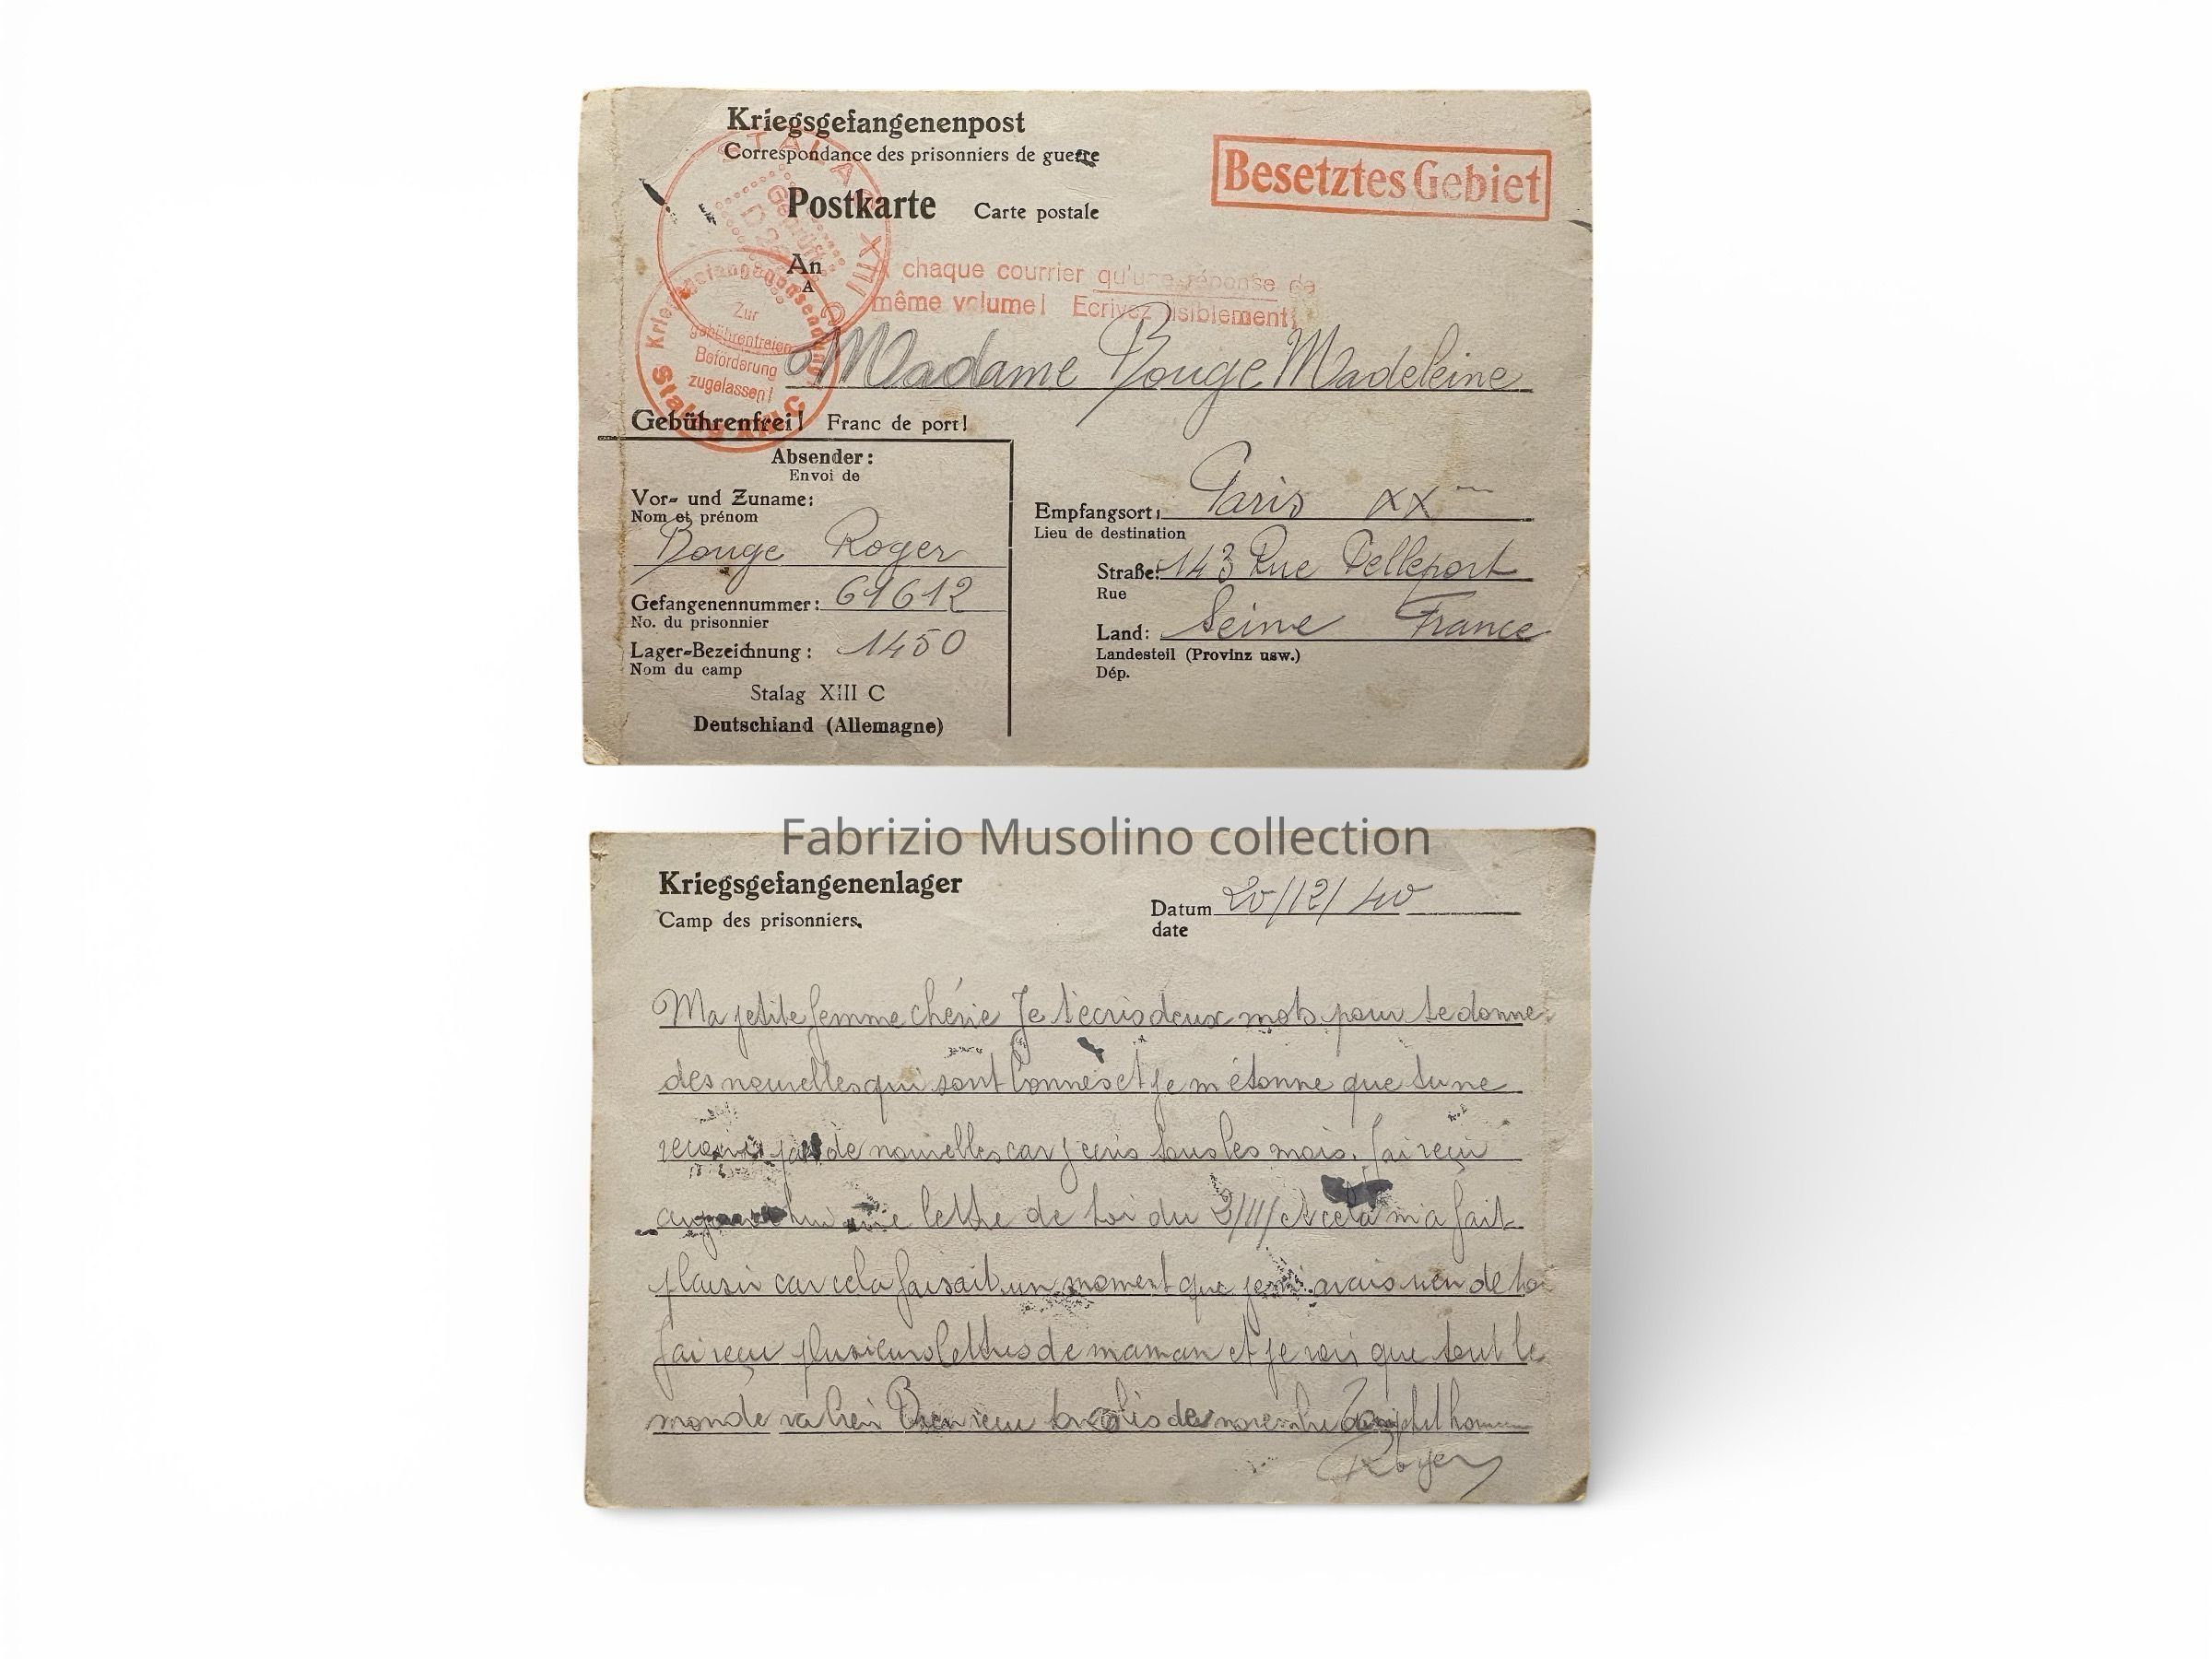 Kriegsgefangenenpost
Correspondance des prisonniers de guerre
Besetztes Gebiet
Postkarte Carte postale
STALAG XIII C
Geprüft
An
A
chaque courrier qu'une réponse de
même volume! Ecrivez lisiblement!
Kriegsgefangenensendung
Zur
gebührenfreien
Beförderung
zugelassen!
Stalag XIII C
Madame Bouge Madeleine
Gebührenfrei! Franc de port!
Absender:
Envoi de
Vor- und Zuname:
Nom et prénom
Bouge Roger
Gefangenennummer: 61612
No. du prisonnier
Lager-Bezeichnung: 1450
Nom du camp
Stalag XIII C
Deutschland (Allemagne)
Empfangsort: Paris XX
Lieu de destination
Straße: 143 Rue Pelleport
Rue
Land: Seine France
Landesteil (Provinz usw.)
Dép.
Fabrizio Musolino collection
Kriegsgefangenenlager
Camp des prisonniers.
Datum 20/12/40
date
Ma petite femme chérie Je t'écris deux mots pour te donner
des nouvelles qui sont bonnes et je m'étonne que tu ne
reçois pas de nouvelles car j'écris tous les mois. J'ai reçu
aujourd'hui une lettre de toi du 2/11/ et cela m'a fait
plaisir car cela faisait un moment que je avais rien de toi
J'ai reçu plusieurs lettres de maman et je vois que tout le
monde va bien Bien reçu colis de novembre Ton petit homme
Roger